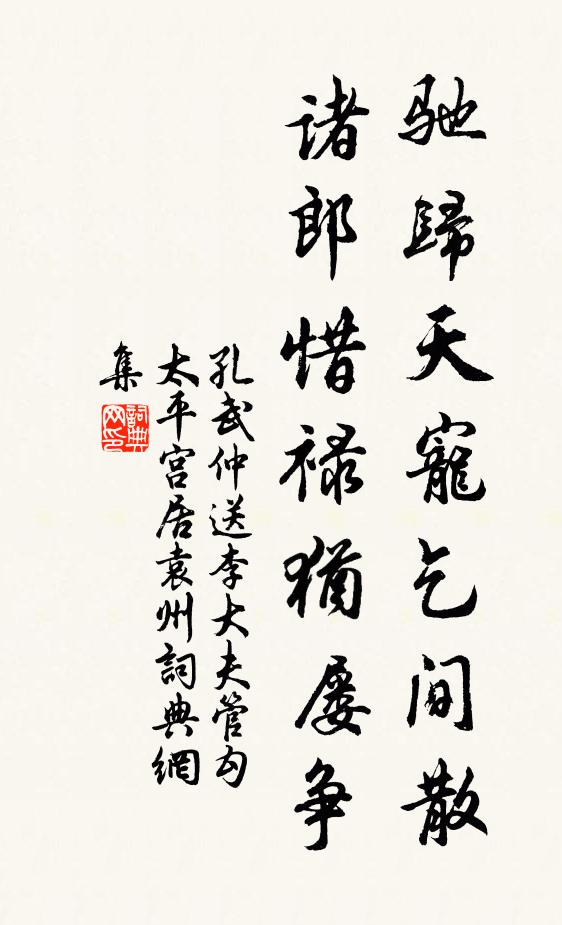 驰歸天寵乞间散
诸郎惜禄猶屡争
孔武仲送李大夫管勾
太平宫居袁州詞典網
集
詞典网印